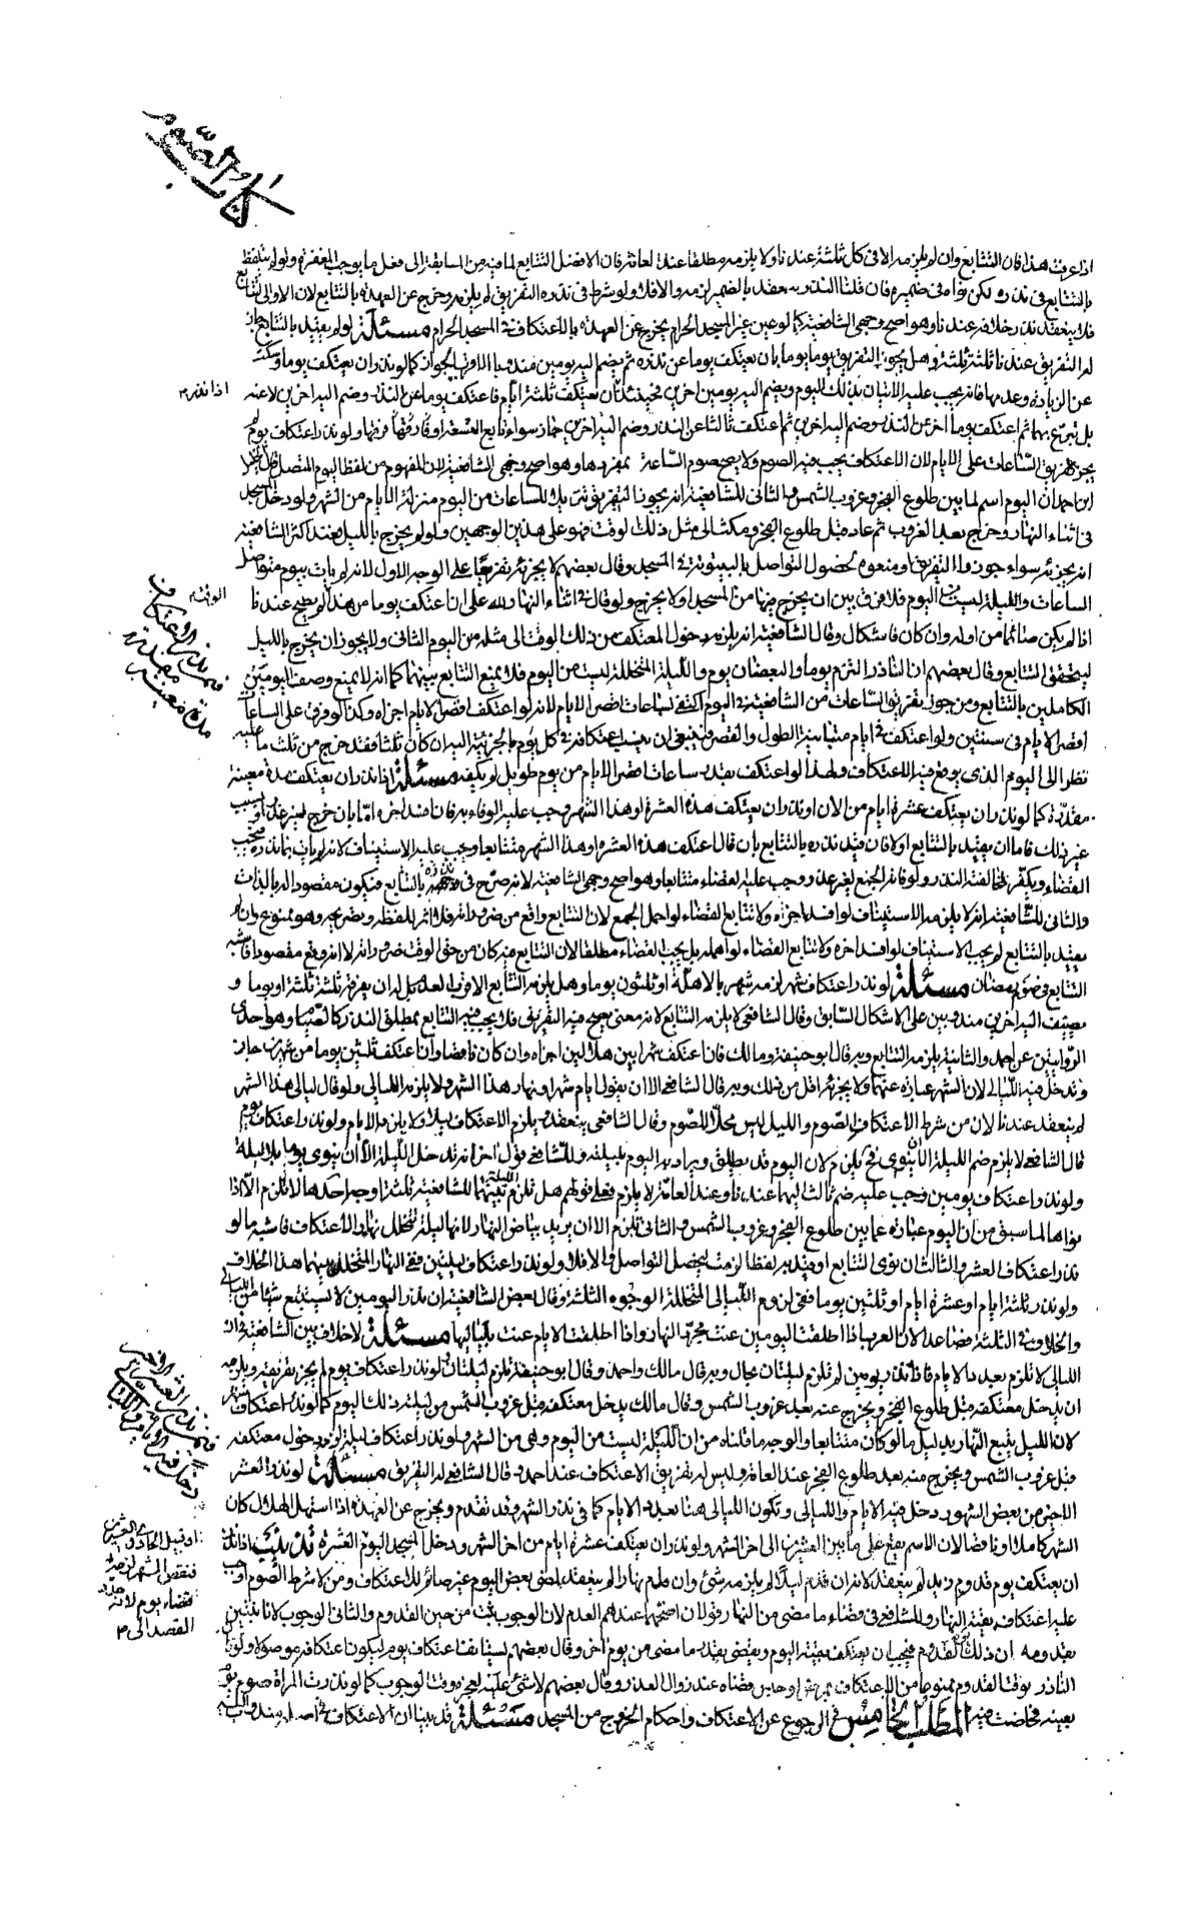 كتاب الصوم
اذا عرفت هذا فان التتابع وان لم يلزمه الا في كل ثلثة عندنا ولا يلزمه مطلقا عند العامة فان الافضل التتابع لما فيه من المسابقة الى فعل ما يوجب المغفرة ولو لم يتلفظ
بالتتابع في نذره ولكن نواه في ضميره فان قلنا النذر ينعقد بالضمير لزمه والا فلا ولو شرط في نذره التفريق لم يلزمه وخرج عن العهدة بالتتابع لان الاولى التتابع
فلا ينعقد نذر خلافه عندنا وهو اصح وجهي الشافعية كما لو عين غير المسجد الحرام يخرج عن العهدة بالاعتكاف في المسجد الحرام مسئلة لو لم يقيد بالتتابع جاز
له التفريق عندنا ثلثة ثلثة وهل يجوز التفريق يوما يوما بان يعتكف يوما عن نذره ثم يضم اليه يومين مندوبا الاقرب الجواز كما لو نذر ان يعتكف يوما وسكت
عن الزيادة وعدمها فانه يجب عليه الاتيان بذلك اليوم ويضم اليه يومين اخرين فحينئذ اذا نذر ان يعتكف ثلثة ايام فاعتكف يوما عن النذر وضم اليه اخرين لا عنه
بل تبرع بهما ثم اعتكف يوما اخر عن النذر وضم اليه اخرين ثم اعتكف ثالثا عن النذر وضم اليه اخرين جاز سواء تابع التسعة او فرقها ولو نذر اعتكاف يوم لم
يجز تفريق الساعات على الايام لان الاعتكاف يجب فيه الصوم ولا يصح صوم الساعة بمفردها وهو اصح وجهي الشافعية لان المفهوم من لفظ اليوم المتصل قال الخليل
ابن احمد ان اليوم اسم لما بين طلوع الفجر وغروب الشمس والثاني للشافعية انه يجوز التفريق تنزيلا للساعات من اليوم منزلة الايام من الشهر ولو دخل المسجد
في اثناء النهار وخرج بعد الغروب ثم عاد قبل طلوع الفجر ومكث الى مثل ذلك الوقت فهو على هذين الوجهين ولو لم يخرج بالليل فعند اكثر الشافعية
انه يجزئه سواء جوزوا التفريق او منعوه لحصول التواصل بالبيتوتة في المسجد وقال بعضهم لا يجزئه تفريعا على الوجه الاول لانه لم يات بيوم متواصل
الساعات والليلة ليست من اليوم فلا فرق بين ان يخرج فيها من المسجد او لا يخرج ولو قال في اثناء النهار لله علي ان اعتكف يوما من هذا الوقت لم يصح عندنا
اذا لم يكن صائما من اوله وان كان فاشكال وقال الشافعية انه يلزمه دخول المعتكف من ذلك الوقت الى مثله من اليوم الثاني ولا يجوز ان يخرج بالليل
ليتحقق التتابع وقال بعضهم ان الناذر التزم يوما والبعضان يوم والليلة المتخللة ليست من اليوم فلا يمنع التتابع بينهما كما انه لا يمنع وصف اليومين
الكاملين بالتتابع ومن جوز تفريق الساعات من الشافعية في اليوم اكتفى بساعات اقصر الايام لانه لو اعتكف اقصر الايام اجزاه وكذا لو فرق على الساعات
اقصر الايام في سنتين ولو اعتكف في ايام متباينة الطول والقصر فينبغي ان ينسب اعتكافه في كل يوم بالجزئية اليه ان كان ثلثا فقد خرج من ثلث ما عليه
نظرا الى اليوم الذي يوقع فيه الاعتكاف ولهذا لو اعتكف بقدر ساعات اقصر الايام من يوم طويل لم يكفه مسئلة اذا نذر ان يعتكف مدة معينة
مقدرة كما لو نذر ان يعتكف عشرة ايام من الان او نذر ان يعتكف هذه العشرة او هذا الشهر وجب عليه الوفاء به فان افسد اخره اما بان خرج لغير عذر او بسبب
غير ذلك فاما ان يقيد بالتتابع او لا فان قيد نذره بالتتابع بان قال اعتكف هذه العشرة او هذا الشهر متتابعا وجب عليه الاستيناف لانه لم يات بما نذره فيجب
القضاء ويكفر لمخالفة النذر ولو فاته الجميع لغير عذر وجب عليه القضاء متتابعا وهو اصح وجهي الشافعية لانه صرح في نذره بالتتابع فيكون مقصودا له بالذات
والثاني للشافعية انه لا يلزمه الاستيناف لو افسد اخره ولا تتابع القضاء لو اهمل الجميع لان التتابع واقع من ضروراته فلا اثر للفظه وتصريحه وهو ممنوع وان لم
يقيد بالتتابع لم يجب الاستيناف لو افسد اخره ولا تتابع القضاء لو اهمله بل يجب القضاء مطلقا لان التتابع فيه كان من حق الوقت ضرورة انه لا انه وقع مقصودا فاشبه
التتابع في صوم رمضان مسئلة لو نذر اعتكاف شهر لزمه شهر بالاهلة او ثلثون يوما وهل يلزمه التتابع الاقرب العدم بل له ان يفرقه ثلثة ثلثة او يوما و
يضيف اليه اخرين مندوبين على الاشكال السابق وقال الشافعي لا يلزمه التتابع لانه معنى يصح فيه التفريق فلا يجب فيه التتابع بمطلق النذر كالصيام وهو احدى
الروايتين عن احمد والثانية يلزمه التتابع وبه قال ابو حنيفة ومالك فان اعتكف شهرا بين هلالين اجزاه وان كان ناقصا وان اعتكف ثلثين يوما من شهرين جاز
وتدخل فيه الليالي لان الشهر عبارة عنهما ولا يجزئه اقل من ذلك وبه قال الشافعي الا ان يقول ايام شهر او نهار هذا الشهر ولا يلزمه الليالي ولو قال ليالي هذا الشهر
لم ينعقد عندنا لان من شرط الاعتكاف الصوم والليل ليس محلا للصوم وقال الشافعي ينعقد ويلزم الاعتكاف ليلا ولا يلزمه الايام ولو نذر اعتكاف يوم
قال الشافعي لا يلزم ضم الليلة الا ان ينوي فحينئذ يلزم لان اليوم قد يطلق ويراد به اليوم بليلته وللشافعي قول اخر انه تدخل الليلة الا ان ينوي يوما بلا ليلة
ولو نذر اعتكاف يومين وجب عليه ضم ثالث اليهما عندنا وعند العامة لا يلزم فعلى قولهم هل تلزم الليلة بينهما للشافعية ثلثة اوجه احدها لا تلزم الا اذا
نواها لما سبق من ان اليوم عبارة عما بين طلوع الفجر وغروب الشمس والثاني تلزم الا ان يريد بياض النهار لانها ليلة تتخلل نهار الاعتكاف فاشبه ما لو
نذر اعتكاف العشر والثالث ان نوى التتابع او قيد به لفظا لزمت ليحصل التواصل والا فلا ولو نذر اعتكاف ليلتين ففي النهار المتخلل بينهما هذا الخلاف
ولو نذر ثلثة ايام او عشرة ايام او ثلثين يوما ففي لزوم الليالي المتخللة الوجوه الثلثة وقال بعض الشافعية ان نذر اليومين لا يستتبع شيئا من الليالي
والخلاف في الثلثة فصاعدا لان العرب اذا اطلقت اليومين عنت مجرد النهار واذا اطلقت الايام عنت بلياليها مسئلة لا خلاف بين الشافعية في ان
الليالي لا تلزم بعدد الايام فاذا نذر يومين لم تلزم ليلتان بحال وبه قال مالك واحمد وقال ابو حنيفة تلزم ليلتان ولو نذر اعتكاف يوم لم يجز تفريقه ويلزمه
ان يدخل معتكفه قبل طلوع الفجر ويخرج عنه بعد غروب الشمس وقال مالك يدخل معتكفه قبل غروب الشمس من ليلة ذلك اليوم كما لو نذر اعتكاف شهر
لان الليل يتبع النهار بدليل ما لو كان متتابعا والوجه ما قلناه من ان الليلة ليست من اليوم وهي من الشهر ولو نذر اعتكاف ليلة لزمه دخول معتكفه
قبل غروب الشمس ويخرج منه بعد طلوع الفجر عند العامة وليس له تفريق الاعتكاف عند احمد وقال الشافعي له التفريق مسئلة لو نذر العشر
الاخير من بعض الشهور دخل فيه الايام والليالي وتكون الليالي هنا بعدد الايام كما في نذر الشهر وقد تقدم ويخرج عن العهدة اذا استهل الهلال كان
الشهر كاملا او ناقصا لان الاسم يقع على ما بين العشرين الى اخر الشهر ولو نذر ان يعتكف عشرة ايام من اخر الشهر ودخل المسجد اليوم العشرة تذنيب اذا نذر
ان يعتكف يوم قدوم زيد لم ينعقد لانه ان قدم ليلا لم يلزمه شئ وان قدم نهارا لم ينعقد لمضي بعض اليوم غير صائم للاعتكاف ومن لا شرط الصوم اوجب
عليه اعتكاف بقية النهار وللشافعي في قضاء ما مضى من النهار قولان اصحهما عندهم العدم لان الوجوب ثبت من حين القدوم والثاني الوجوب لانا نتبين
بقدومه ان ذلك يوم القدوم فيجب ان يعتكف بقية اليوم ويقضي بقدر ما مضى من يوم اخر وقال بعضهم يستانف اعتكاف يوم ليكون اعتكافه موصولا ولو كان
الناذر وقت القدوم ممنوعا من الاعتكاف بمرض او حبس قضاه عند زوال العذر وقال بعضهم لا شئ عليه لعجزه وقت الوجوب كما لو نذرت المراة صوم يوم
بعينه فحاضت فيه المطلب الخامس في الرجوع عن الاعتكاف واحكام الخروج من المسجد مسئلة قد بينا ان الاعتكاف في اصله مندوب اليه
اذا نذر م
الوقت
فيمن نذر الاعتكاف
مدة معينة
فيمن نذر العشر الاخير
دخل فيه الايام والليالي
او قبيل الحادي والعشرين
فنقص الشهر لزمه
قضاء يوم لانه حدد
القصد الى م